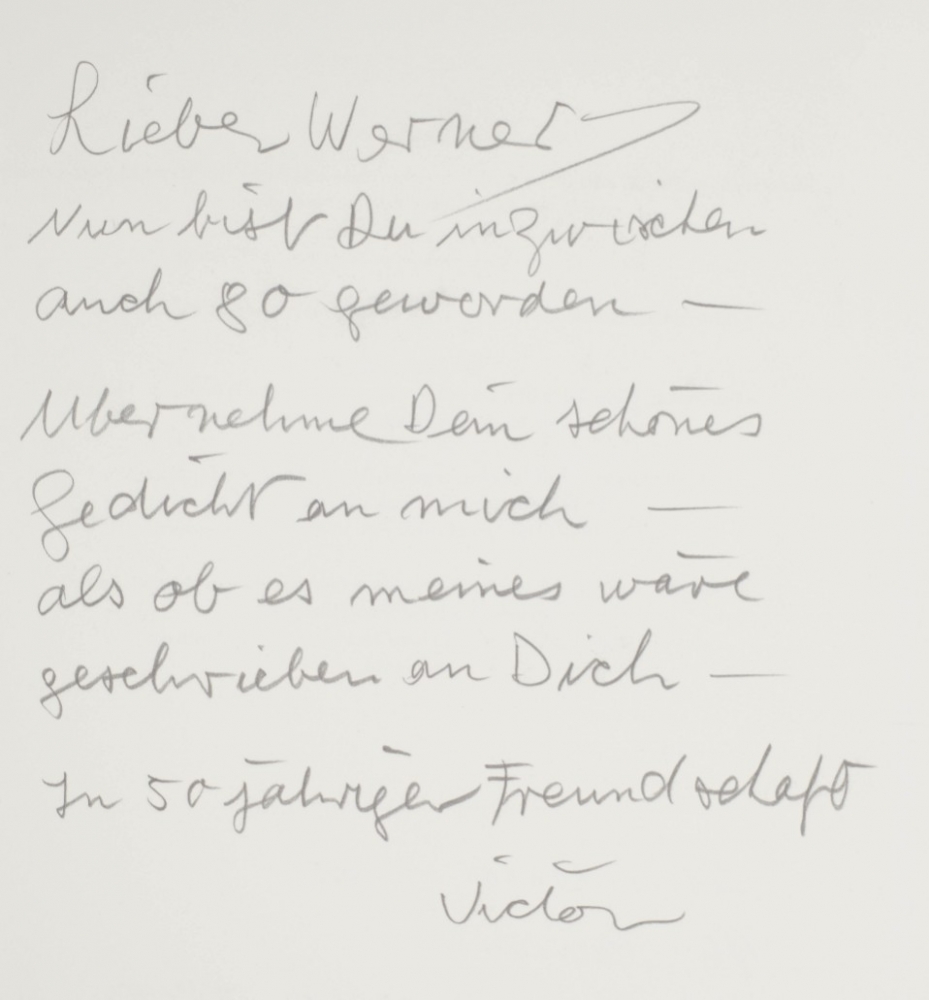 Lieber Werner
Nun bist Du inzwischen
auch 80 geworden —
Übernehme Dein schönes
Gedicht an mich —
als ob es meines wäre
geschrieben an Dich —
In 50 jähriger Freundschaft
Victor